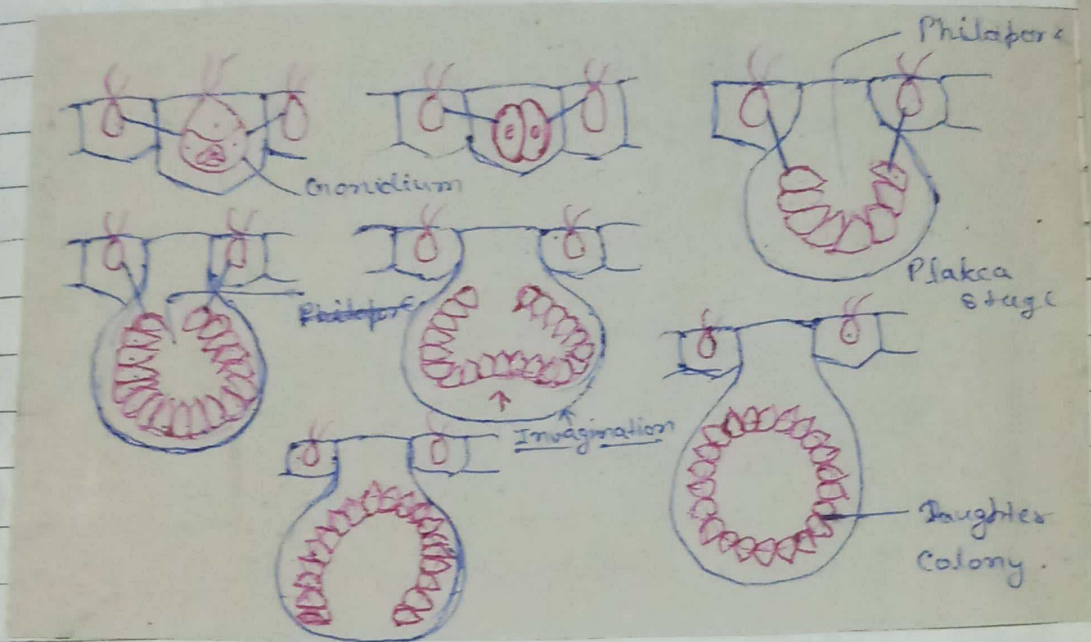 Philapore
Gonidium
Plakea
stage
Philopore
Invagination
Daughter
Colony.